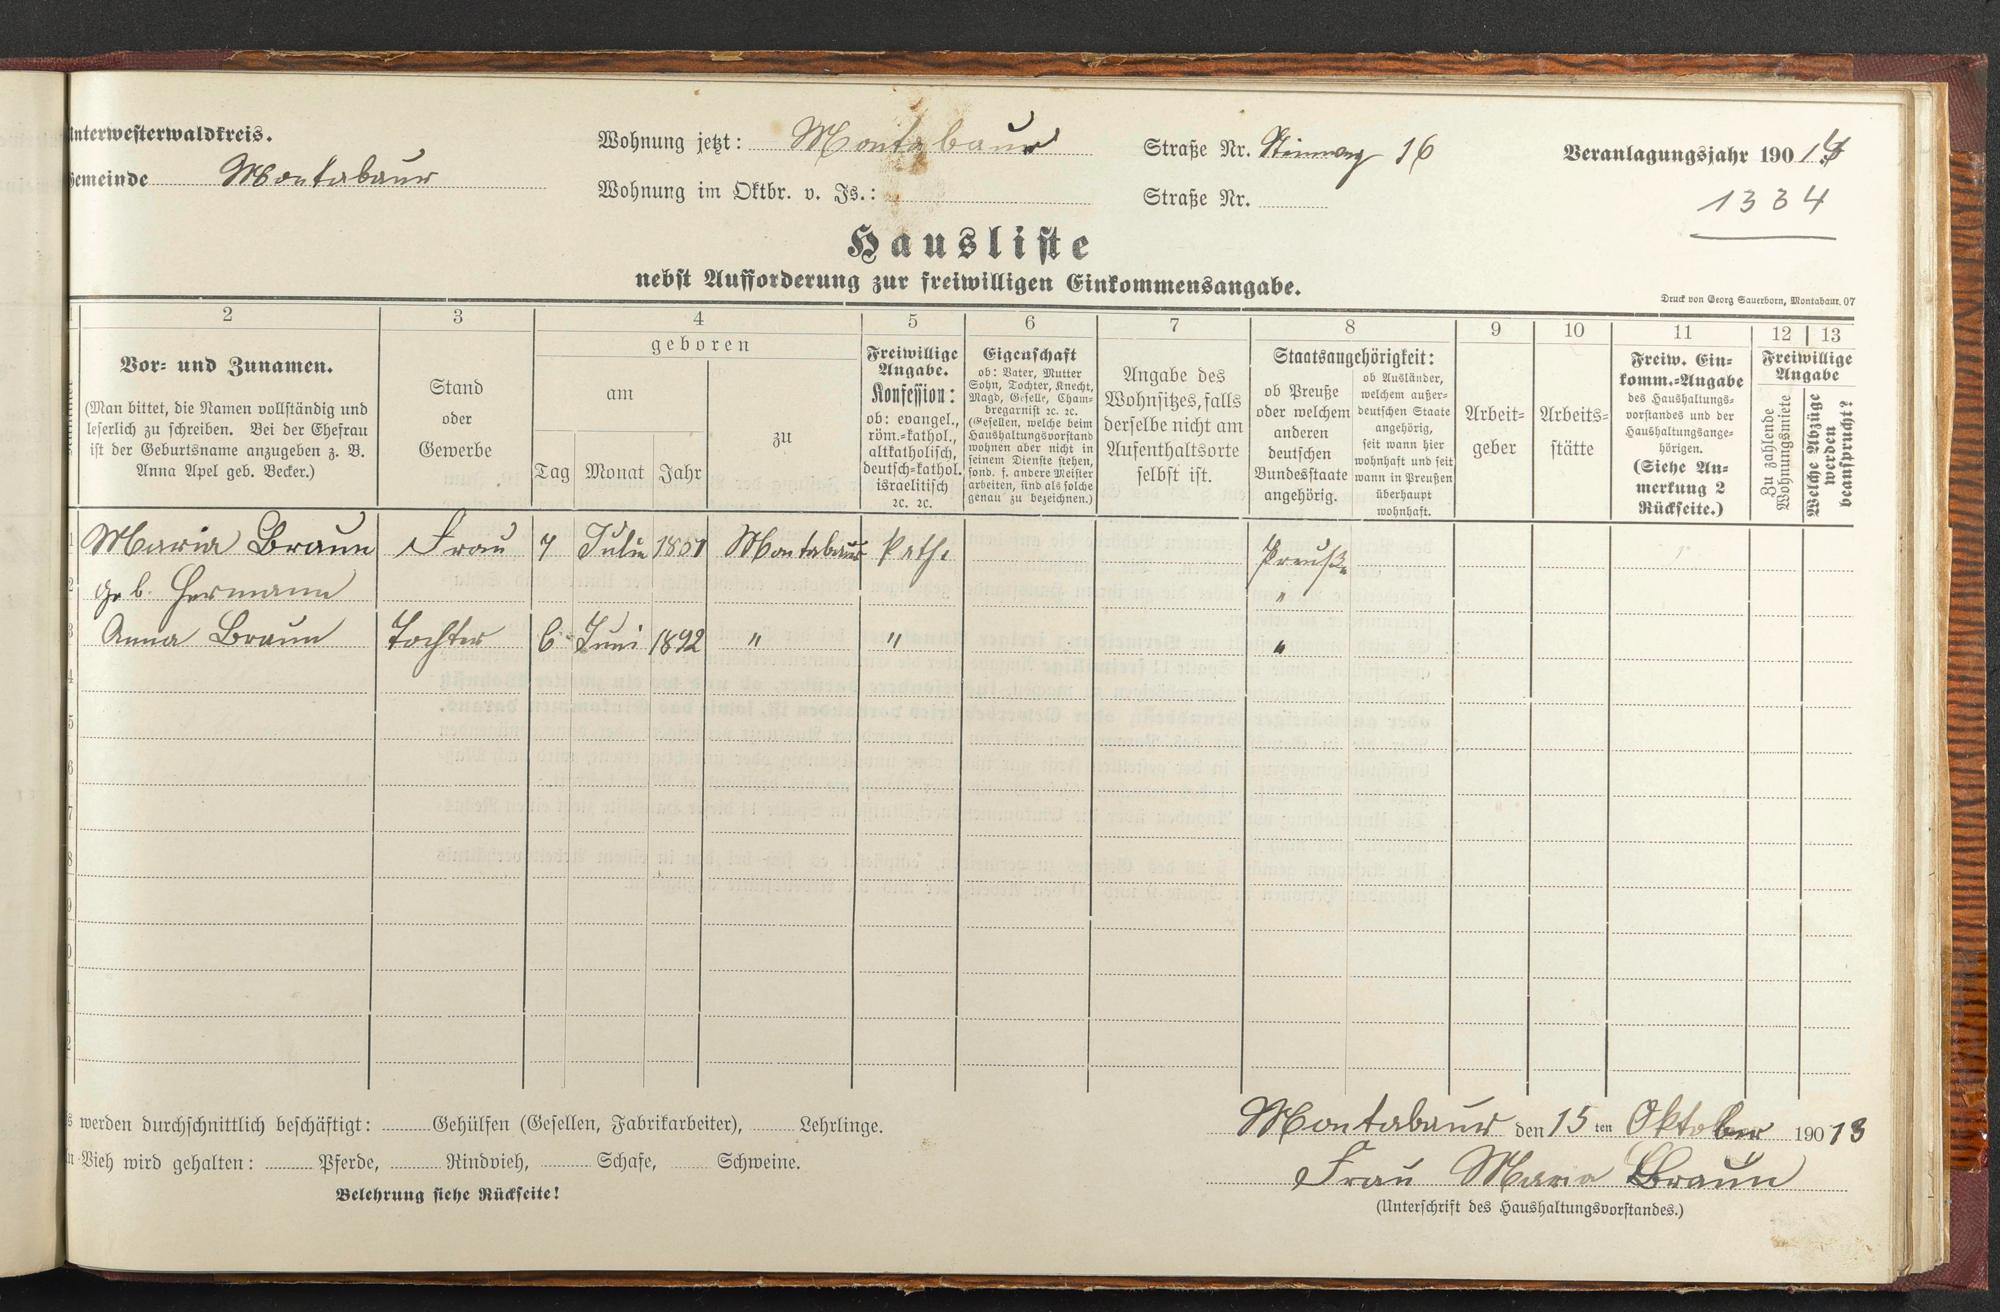 Unterwesterwaldkreis.
Gemeinde Montabaur
Wohnung jetzt: Montabaur Straße Nr. Steinweg 16
Wohnung im Oktbr. v. Js.: Straße Nr.
Veranlagungsjahr 190 14
1334
Hausliste
nebst Aufforderung zur freiwilligen Einkommensangabe.
Druck von Georg Sauerborn, Montabaur. 07
2 3 4 5 6 7 8 9 10 11 12 13
Vor- und Zunamen.
(Man bittet, die Namen vollständig und
leserlich zu schreiben. Bei der Ehefrau
ist der Geburtsname anzugeben z. B.
Anna Apel geb. Becker.)
Stand
oder
Gewerbe
geboren
am
Tag Monat Jahr
zu
Freiwillige
Angabe.
Konfession:
ob: evangel.,
röm.-kathol.,
altkatholisch,
deutsch-kathol.
israelitisch
2c. 2c.
Eigenschaft
ob: Vater, Mutter
Sohn, Tochter, Knecht,
Magd, Geselle, Cham-
bregarnist 2c. 2c.
(Gesellen, welche beim
Haushaltungsvorstand
wohnen aber nicht in
seinem Dienste stehen,
sond. f. andere Meister
arbeiten, sind als solche
genau zu bezeichnen.)
Angabe des
Wohnsitzes, falls
derselbe nicht am
Aufenthaltsorte
selbst ist.
Staatsangehörigkeit:
ob Preuße
oder welchem
anderen
deutschen
Bundesstaate
angehörig.
ob Ausländer,
welchem außer-
deutschen Staate
angehörig,
seit wann hier
wohnhaft und seit
wann in Preußen
überhaupt
wohnhaft.
Arbeit-
geber
Arbeits-
stätte
Freiw. Ein-
komm.-Angabe
des Haushaltungs-
vorstandes und der
Haushaltungsange-
hörigen.
(Siehe An-
merkung 2
Rückseite.)
Freiwillige
Angabe
Zu zahlende
Wohnungsmiete
Welche Abzüge
werden
beansprucht?
1 Maria Braun Frau 7 Julie Montabaur Kath. Preuße
2 geb. Hermann "
3 Anna Braun Tochter 6 Juni 1892 " " "
4
5
6
7
8
9
0
1
2
werden durchschnittlich beschäftigt: Gehülfen (Gesellen, Fabrikarbeiter), Lehrlinge.
Vieh wird gehalten: Pferde, Rindvieh, Schafe, Schweine.
Belehrung siehe Rückseite!
Montabaur den 15 ten Oktober 190 13
Frau Maria Braun
(Unterschrift des Haushaltungsvorstandes.)